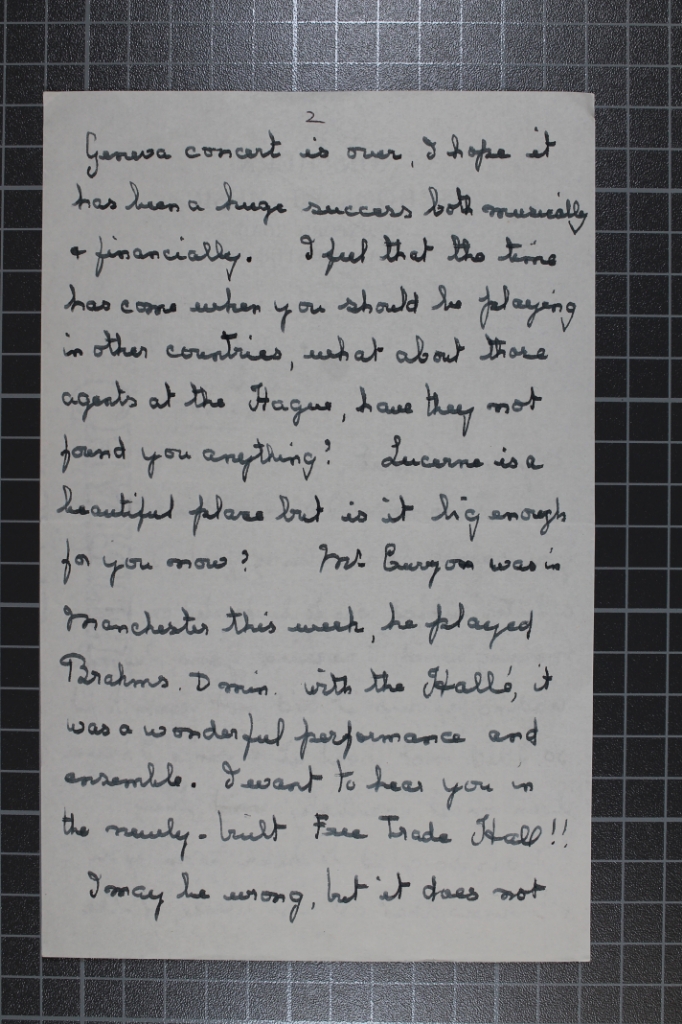 2
Geneva concert is over, I hope it
has been a huge success both musically
& financially. I feel that the time
has come when you should be playing
in other countries, what about those
agents at the Hague, have they not
found you anything? Lucerne is a
beautiful place but is it big enough
for you now? Mr Curzon was in
Manchester this week, he played
Brahms. D min. with the Hallé, it
was a wonderful performance and
ensemble. I want to hear you in
the newly-built Free Trade Hall!!
I may be wrong, but it does not